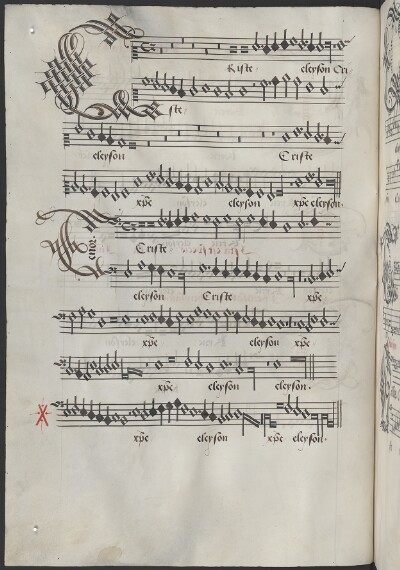 Criste eleyson Cri
ste
eleyson Criste
xpe eleyson xpe eleyson.
Tenor. Criste
eleyson Criste xpe
xpe eleyson xpe
xpe eleyson eleyson.
xpe eleyson xpe eleyson.